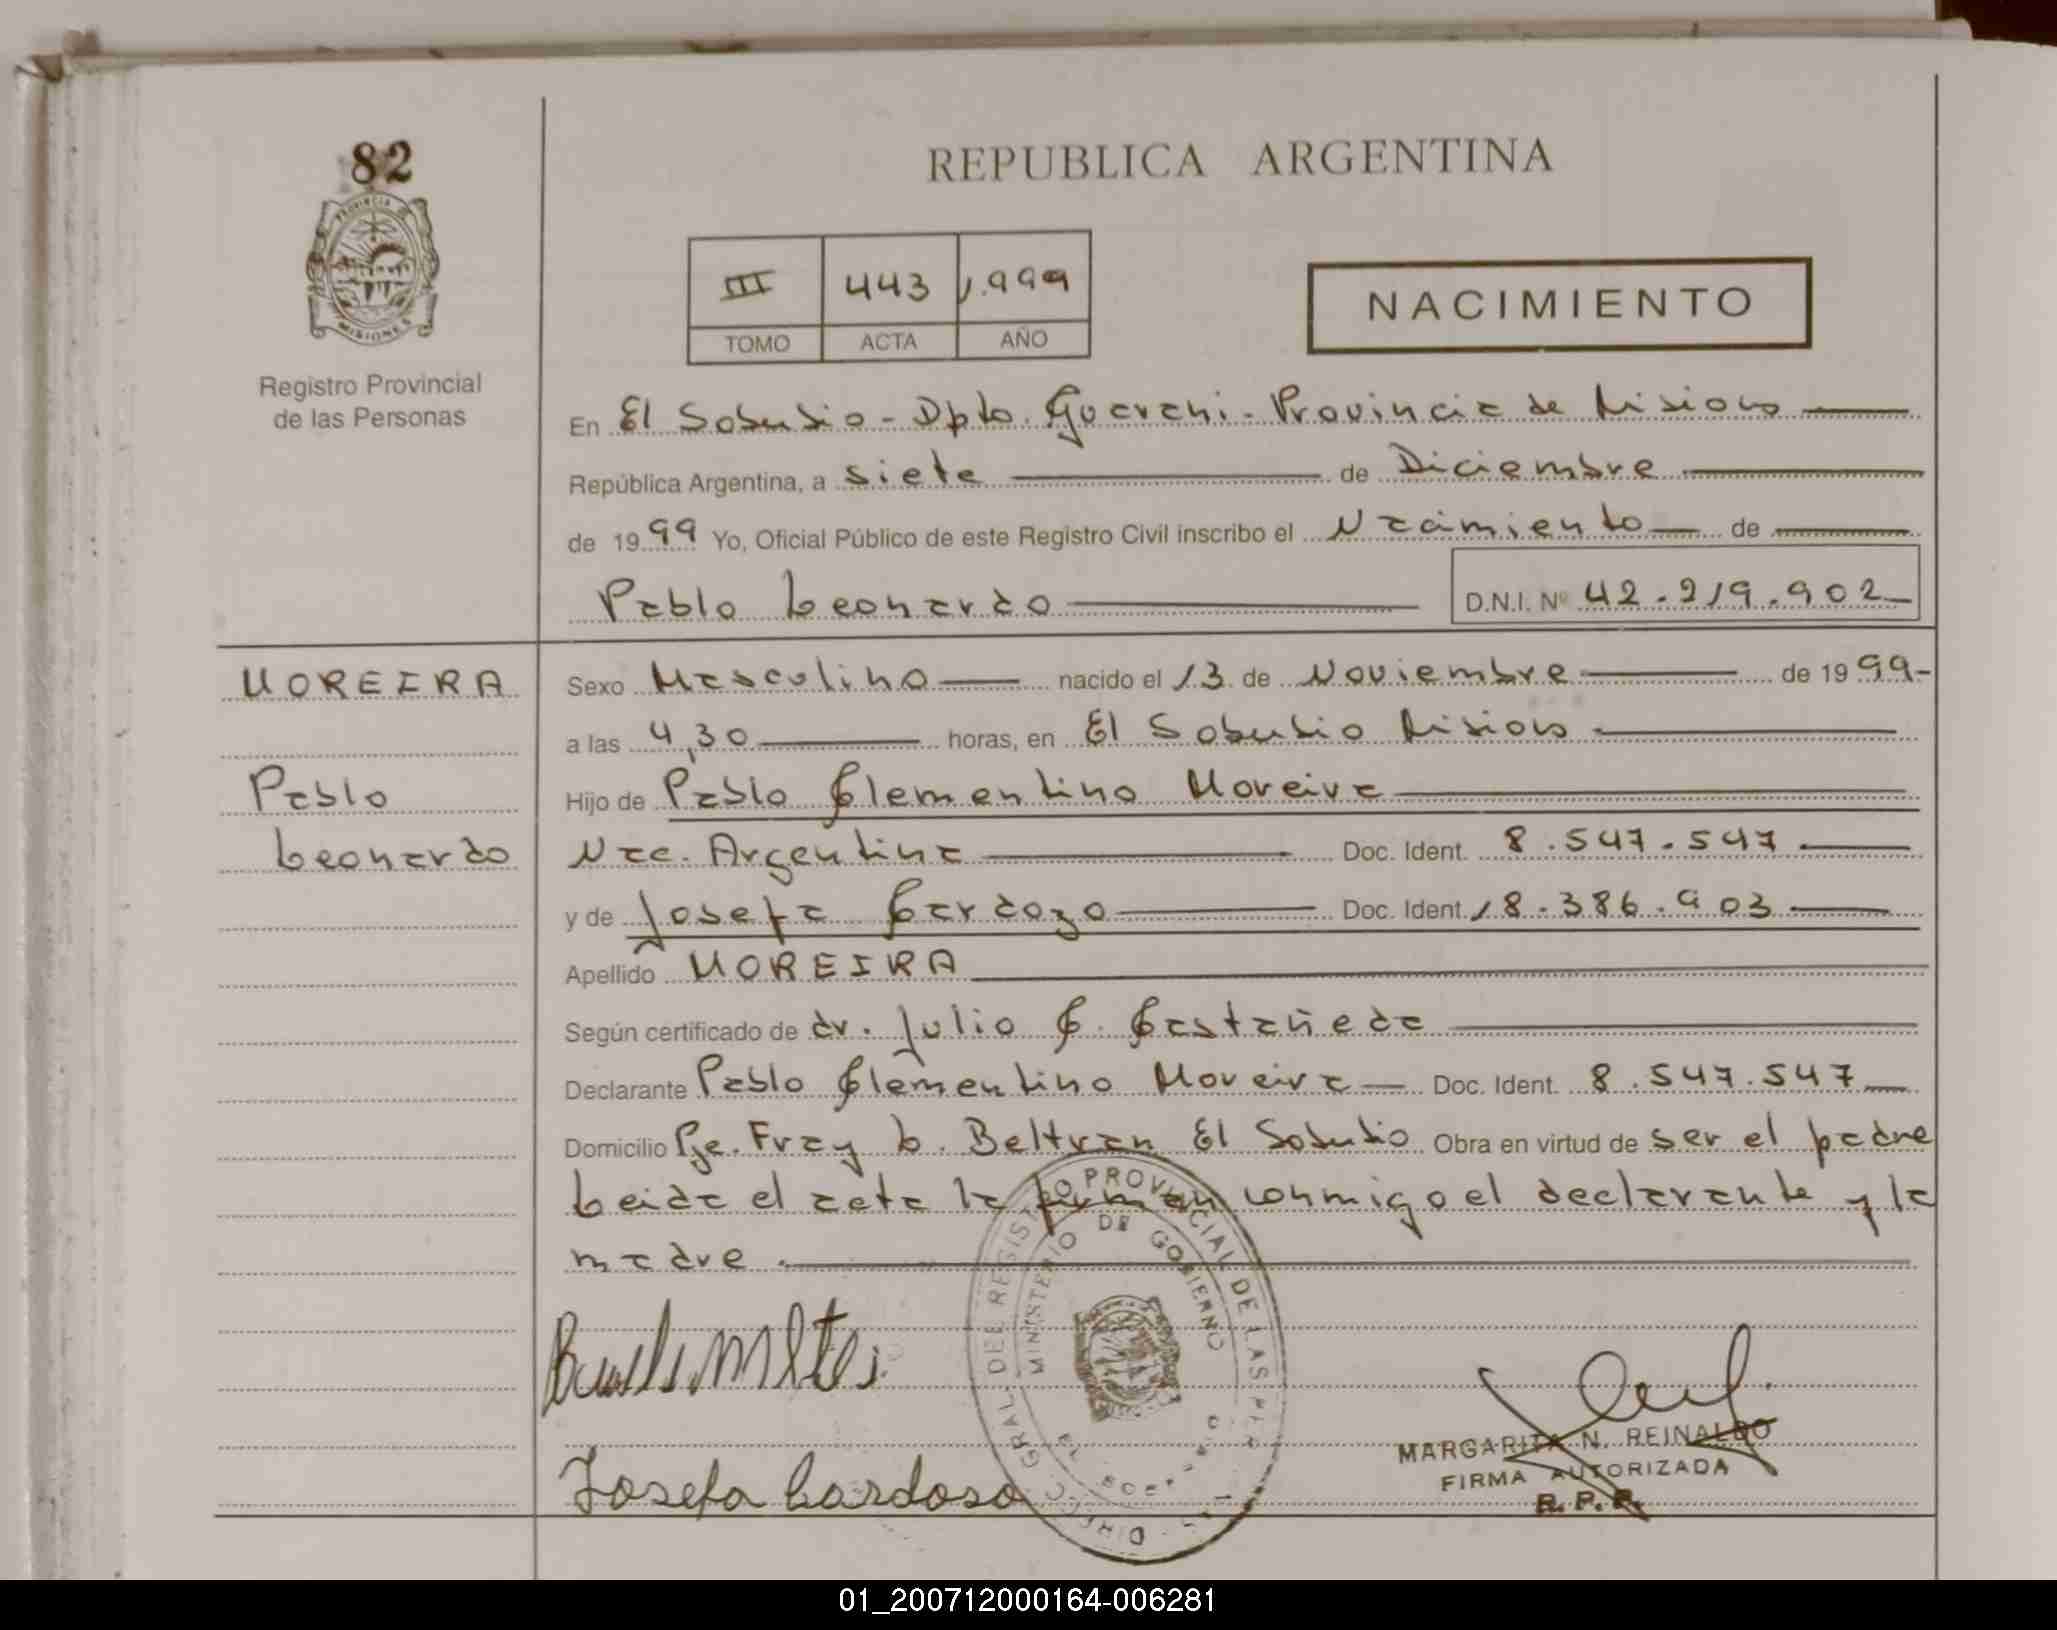 82
PROVINCIA
MISIONES
Registro Provincial
de las Personas
REPUBLICA ARGENTINA
III 443 1.999
TOMO ACTA AÑO
NACIMIENTO
En El Soberbio - Dpto. Guarani - Provincia de Misiones
República Argentina, a siete de Diciembre
de 1999 Yo, Oficial Público de este Registro Civil inscribo el Nacimiento de
Pablo Leonardo D.N.I. Nº 42.219.902
MOREIRA
Pablo
Leonardo
Sexo Masculino nacido el 13 de Noviembre de 1999-
a las 4,30 horas, en El Soberbio Misiones
Hijo de Pablo Clementino Moreira
Nac. Argentina Doc. Ident. 8.547.547
y de Josefa Cardozo Doc. Ident. 18.386.903
Apellido MOREIRA
Según certificado de dr. Julio C. Castañeda
Declarante Pablo Clementino Moreira Doc. Ident. 8.547.547
Domicilio Pje. Fray L. Beltran El Soberbio Obra en virtud de ser el padre
Leida el acta la firman conmigo el declarante y la
madre.
DIREC. GRAL. DEL REGISTRO PROVINCIAL DE LAS PER
MINISTERIO DE GOBIERNO
Josefa Cardoso
MARGARITA N. REINALDO
FIRMA AUTORIZADA
R. P. P.
01_200712000164-006281